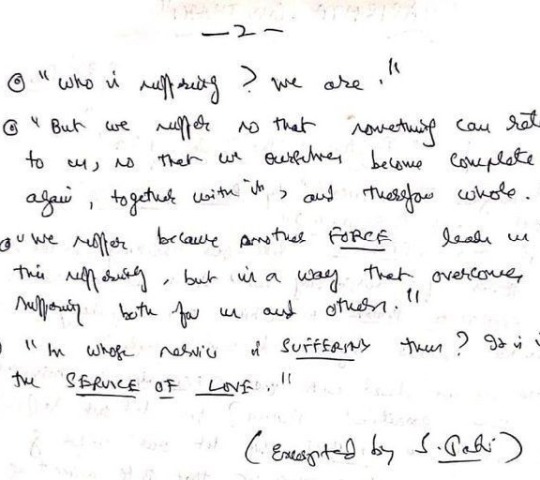 — 2 —
"Who is suffering? We are."
"But we suffer so that something can
to us, so that we ourselves become complete
again, together with it, and therefore whole.
"We suffer because another FORCE leads us
this suffering, but in a way that overcomes
suffering both for us and others."
"In whose service is SUFFERING then? It is
the SERVICE OF LOVE."
(Excerpted by S.